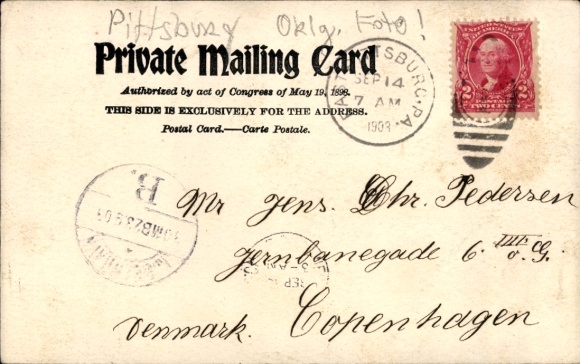 Pittsburg Orlg. Foto!
Private Mailing Card
Authorized by act of Congress of May 19, 1898.
THIS SIDE IS EXCLUSIVELY FOR THE ADDRESS.
Postal Card.—Carte Postale.
PITTSBURG, PA.
SEP 14
7 AM
1903
UNITED STATES OF AMERICA
POSTAGE
2 TWO CENTS 2
B.
23.9.03
Mr Jens. Chr. Pedersen
Jernbanegade 6 III o. G.
Copenhagen
Denmark.